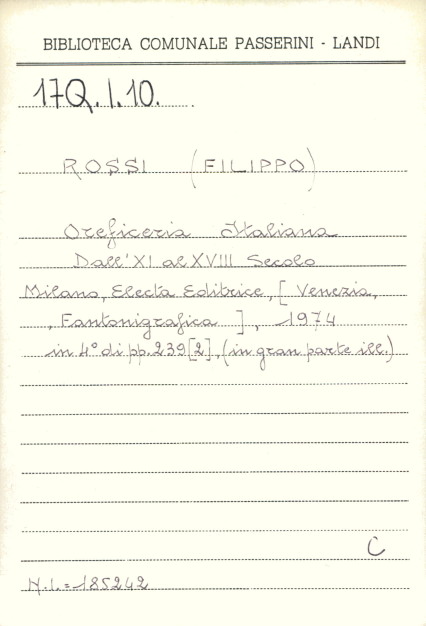 BIBLIOTECA COMUNALE PASSERINI - LANDI
17Q.I.10.
ROSSI (FILIPPO)
Oreficeria Italiana
Dall'XI al XVIII Secolo
Milano, Electa Editrice, [ Venezia,
, Fantonigrafica ], 1974
in 4° di pp. 239[2], (in gran parte ill.)
C
N.I. = 185242